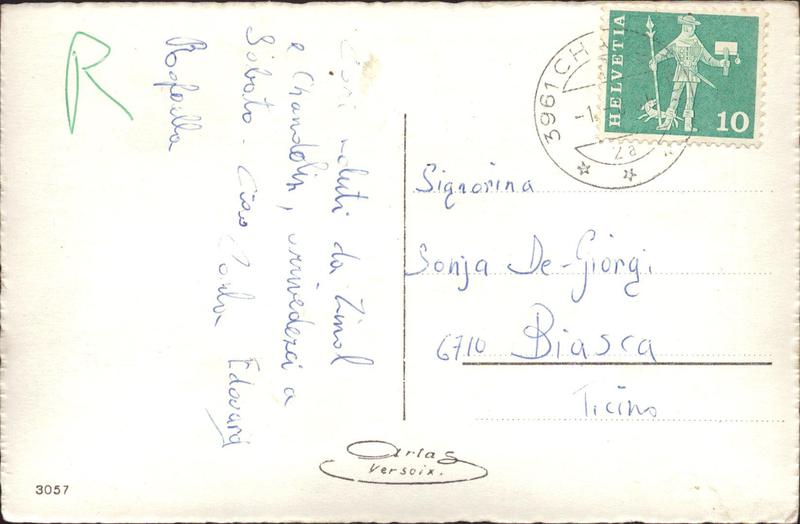 R
Cari saluti da Zinal
e Chandolin, arrivederci a
Sabato. Ciao
Edoardo
Raffaella
HELVETIA
10
3961 CH
Signorina
Sonja De-Giorgi
6710 Biasca
Ticino
Artas
Versoix.
3057